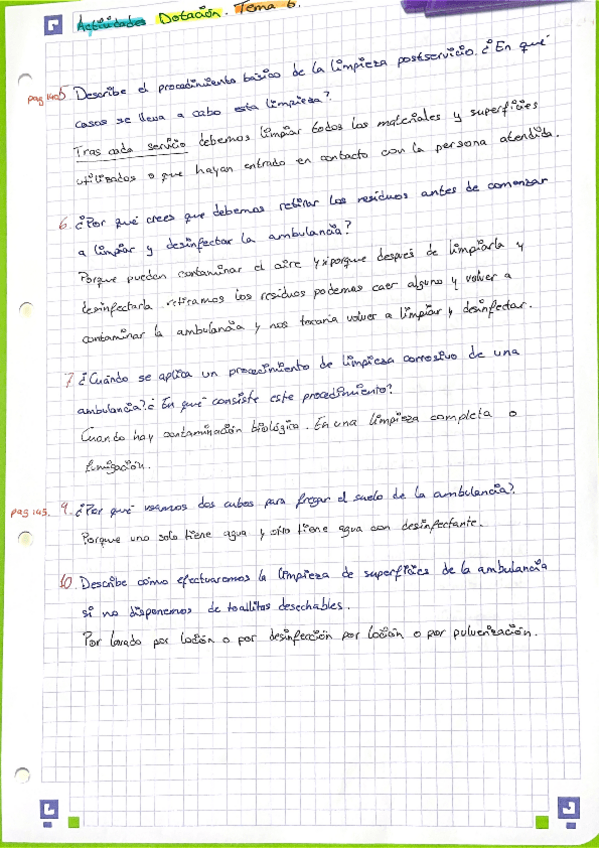 Actividades Dotación. Tema 6.
pag 140 5. Describe el procedimiento básico de la limpieza postservicio. ¿En qué
casos se lleva a cabo esta limpieza?
Tras cada servicio debemos limpiar todos los materiales y superficies
utilizados o que hayan entrado en contacto con la persona atendida.
6. ¿Por qué crees que debemos retirar los residuos antes de comenzar
a limpiar y desinfectar la ambulancia?
Porque pueden contaminar el aire y porque después de limpiarla y
desinfectarla retiramos los residuos podemos caer alguno y volver a
contaminar la ambulancia y nos tocaría volver a limpiar y desinfectar.
7 ¿Cuándo se aplica un procedimiento de limpieza corrosivo de una
ambulancia? ¿En qué consiste este procedimiento?
Cuando hay contaminación biológica. En una limpieza completa o
fumigación.
pag 143. 9. ¿Por qué usamos dos cubos para fregar el suelo de la ambulancia?
Porque uno solo tiene agua y otro tiene agua con desinfectante.
10. Describe cómo efectuaremos la limpieza de superficies de la ambulancia
si no disponemos de toallitas desechables.
Por lavado por loción o por desinfección por loción o por pulverización.